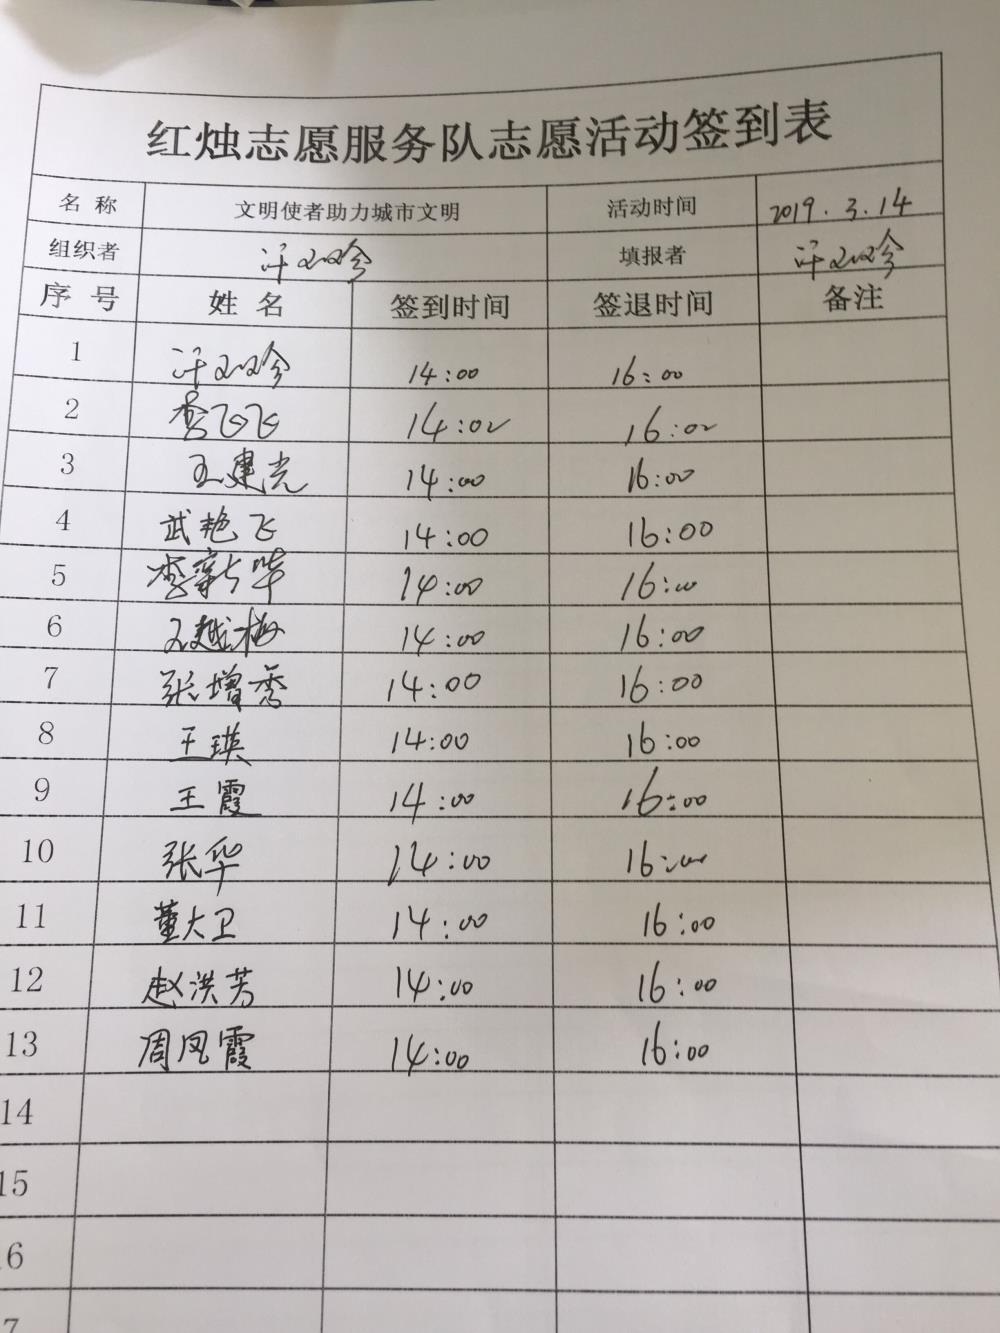 红烛志愿服务队志愿活动签到表
名 称 文明使者助力城市文明 活动时间 2019.3.14
组织者 填报者
序 号 姓 名 签到时间 签退时间 备注
1 14:00 16:00
2 李飞飞 14:02 16:02
3 王建光 14:00 16:00
4 武艳飞 14:00 16:00
5 李新华 14:00 16:00
6 王越梅 14:00 16:00
7 张增秀 14:00 16:00
8 王瑛 14:00 16:00
9 王霞 14:00 16:00
10 张华 14:00 16:00
11 董大卫 14:00 16:00
12 赵洪芳 14:00 16:00
13 周凤霞 14:00 16:00
14
15
6
7